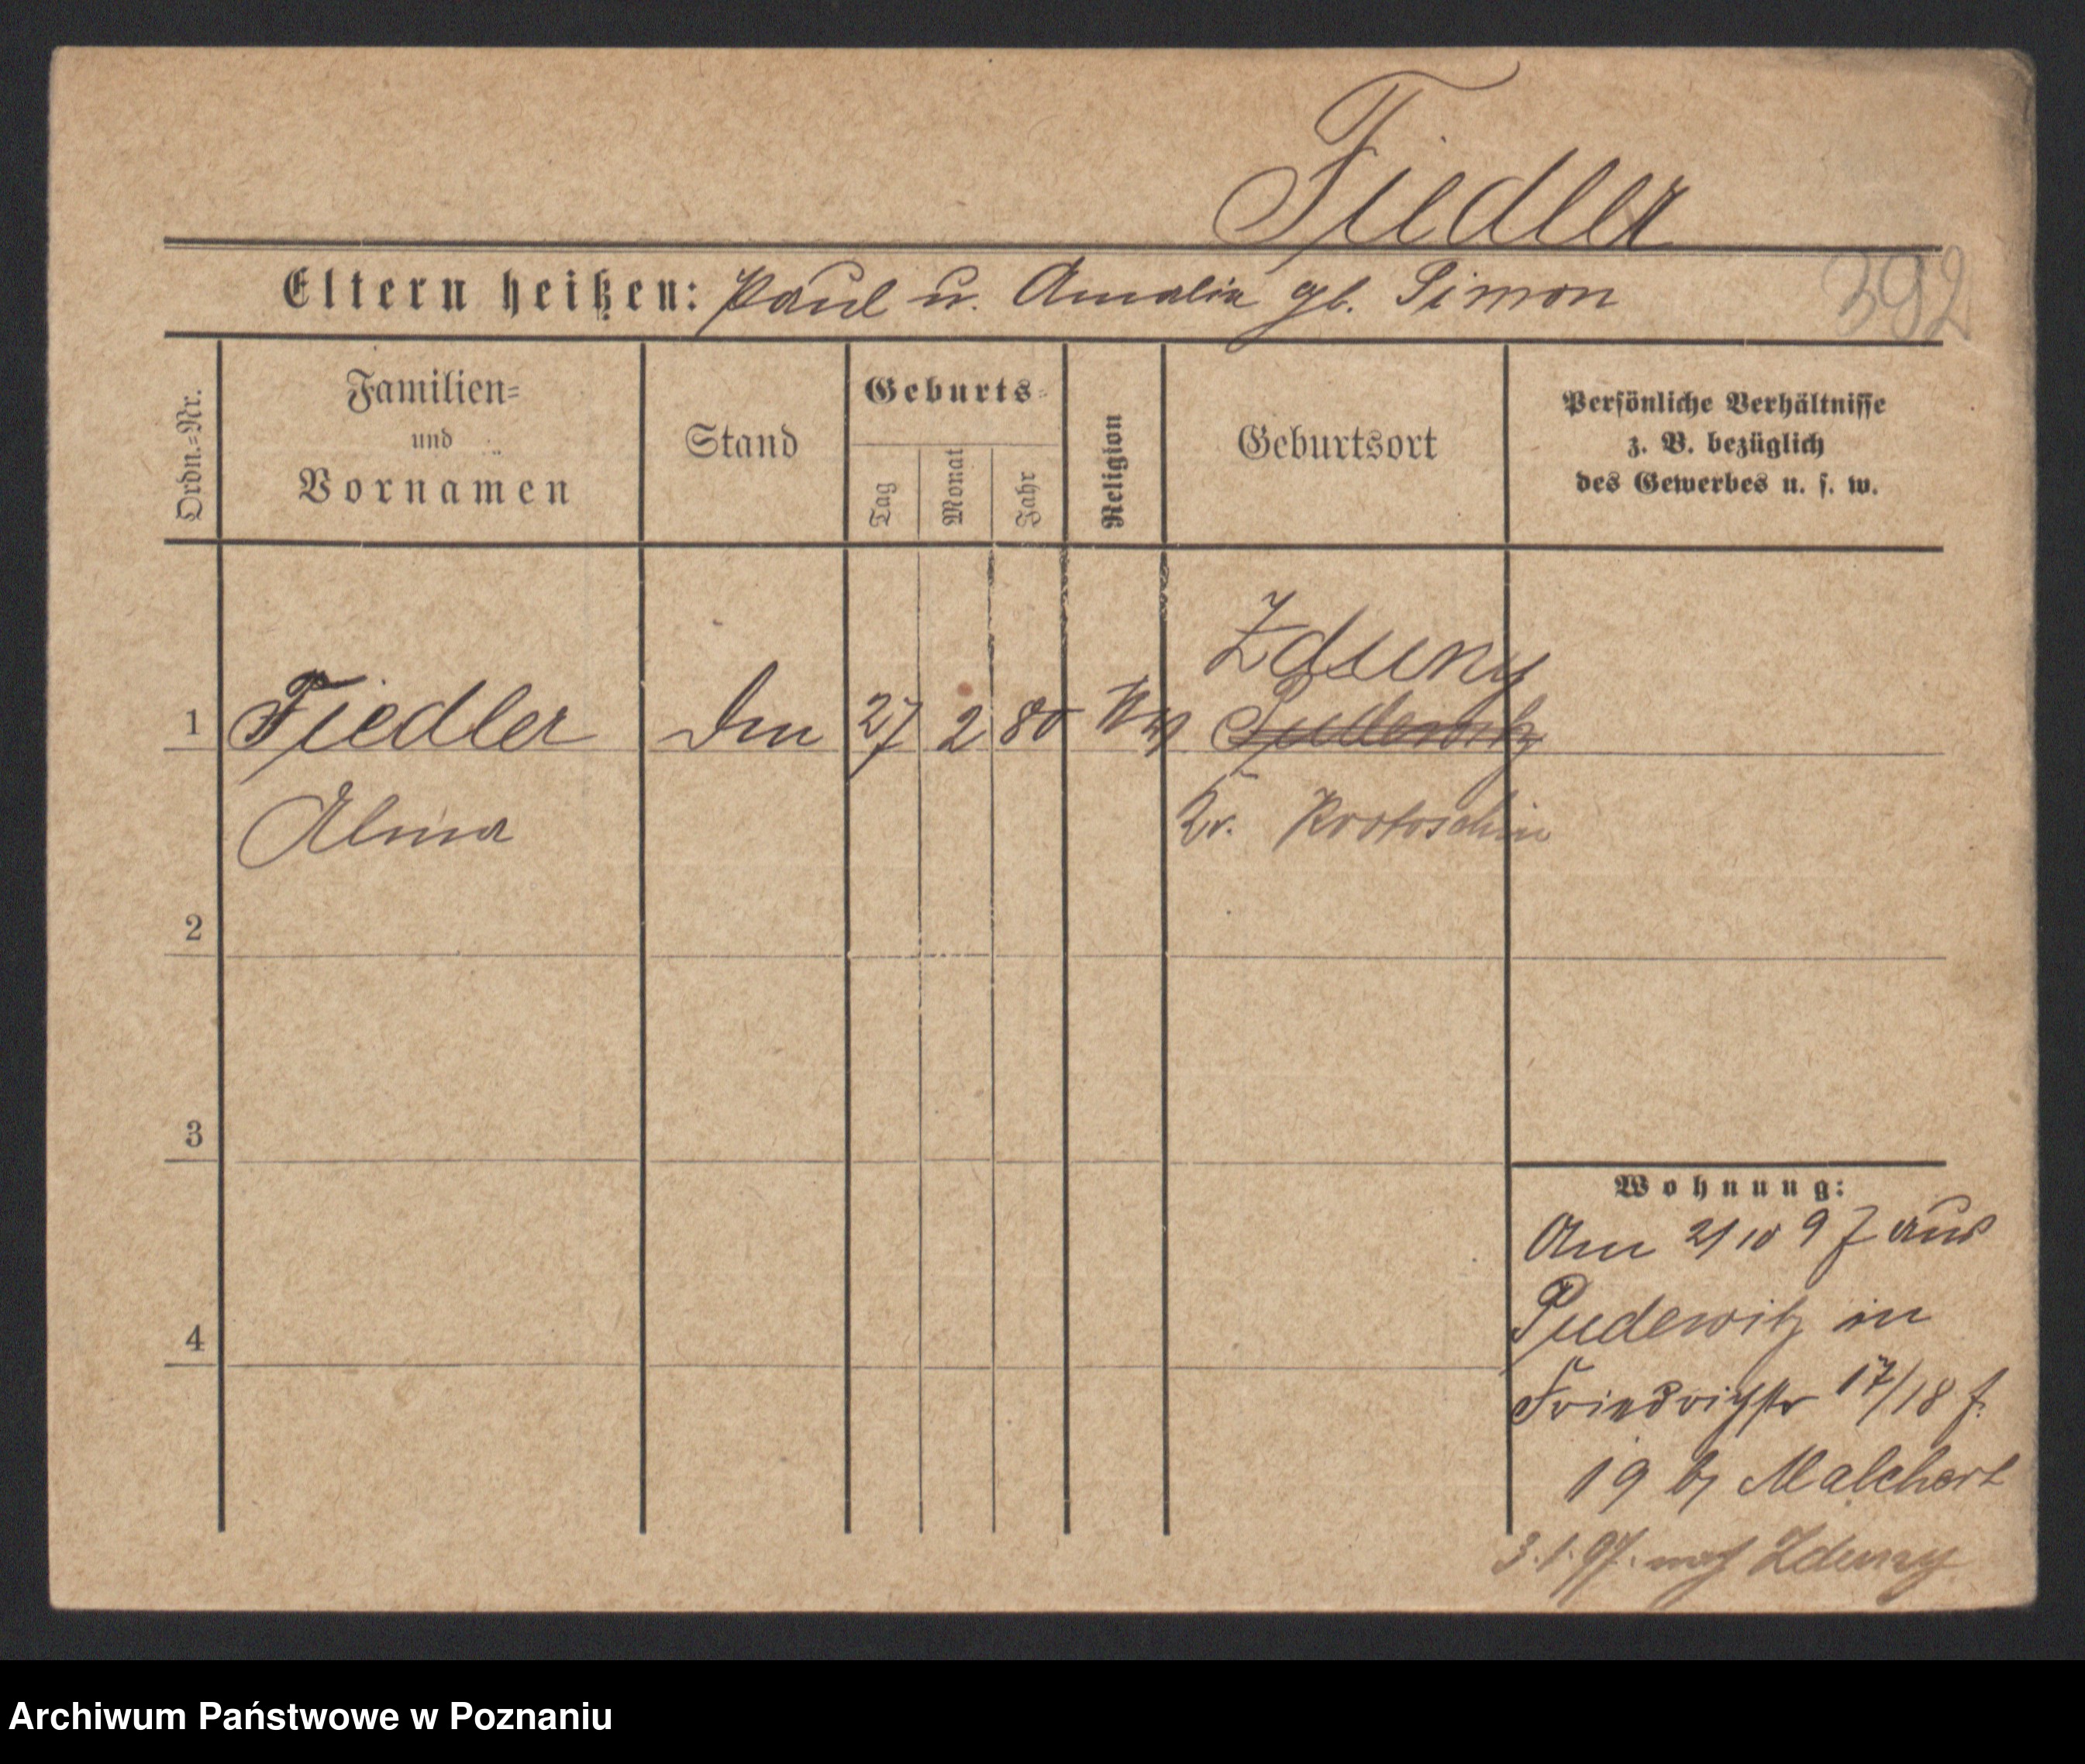 Fiedler
Eltern heißen: Paul u. Amalia gb. Simon
392
Ordn.-Nr.
Familien-
und
Vornamen
Stand
Geburts-
Tag
Monat
Jahr
Religion
Geburtsort
Persönliche Verhältnisse
z. B. bezüglich
des Gewerbes u. s. w.
Zduny
1 Fiedler 27 2 80 Pudewitz
Alma Kr. Krotoschin
2
3
4
Wohnung:
Am 21 10 97 aus
Pudewitz in
Friedrichstr 17/18 f.
19 by Malchert
3.1.97. nach Zduny
Archiwum Państwowe w Poznaniu